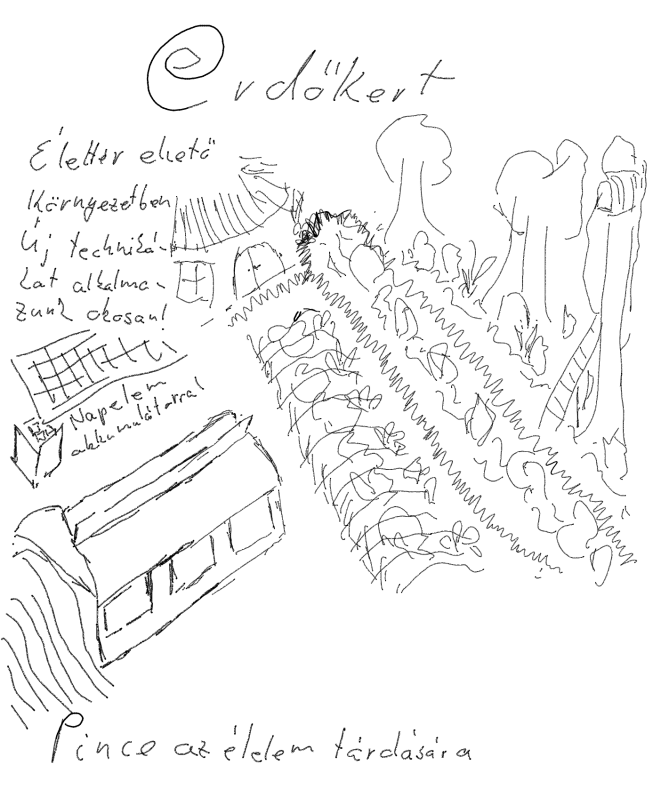 Erdőkert
Élettér ehető
környezetben
Új techniká-
kat alkalma-
zunk okosan!
Napelem
akkumulátorral
Pince az élelem tárdására